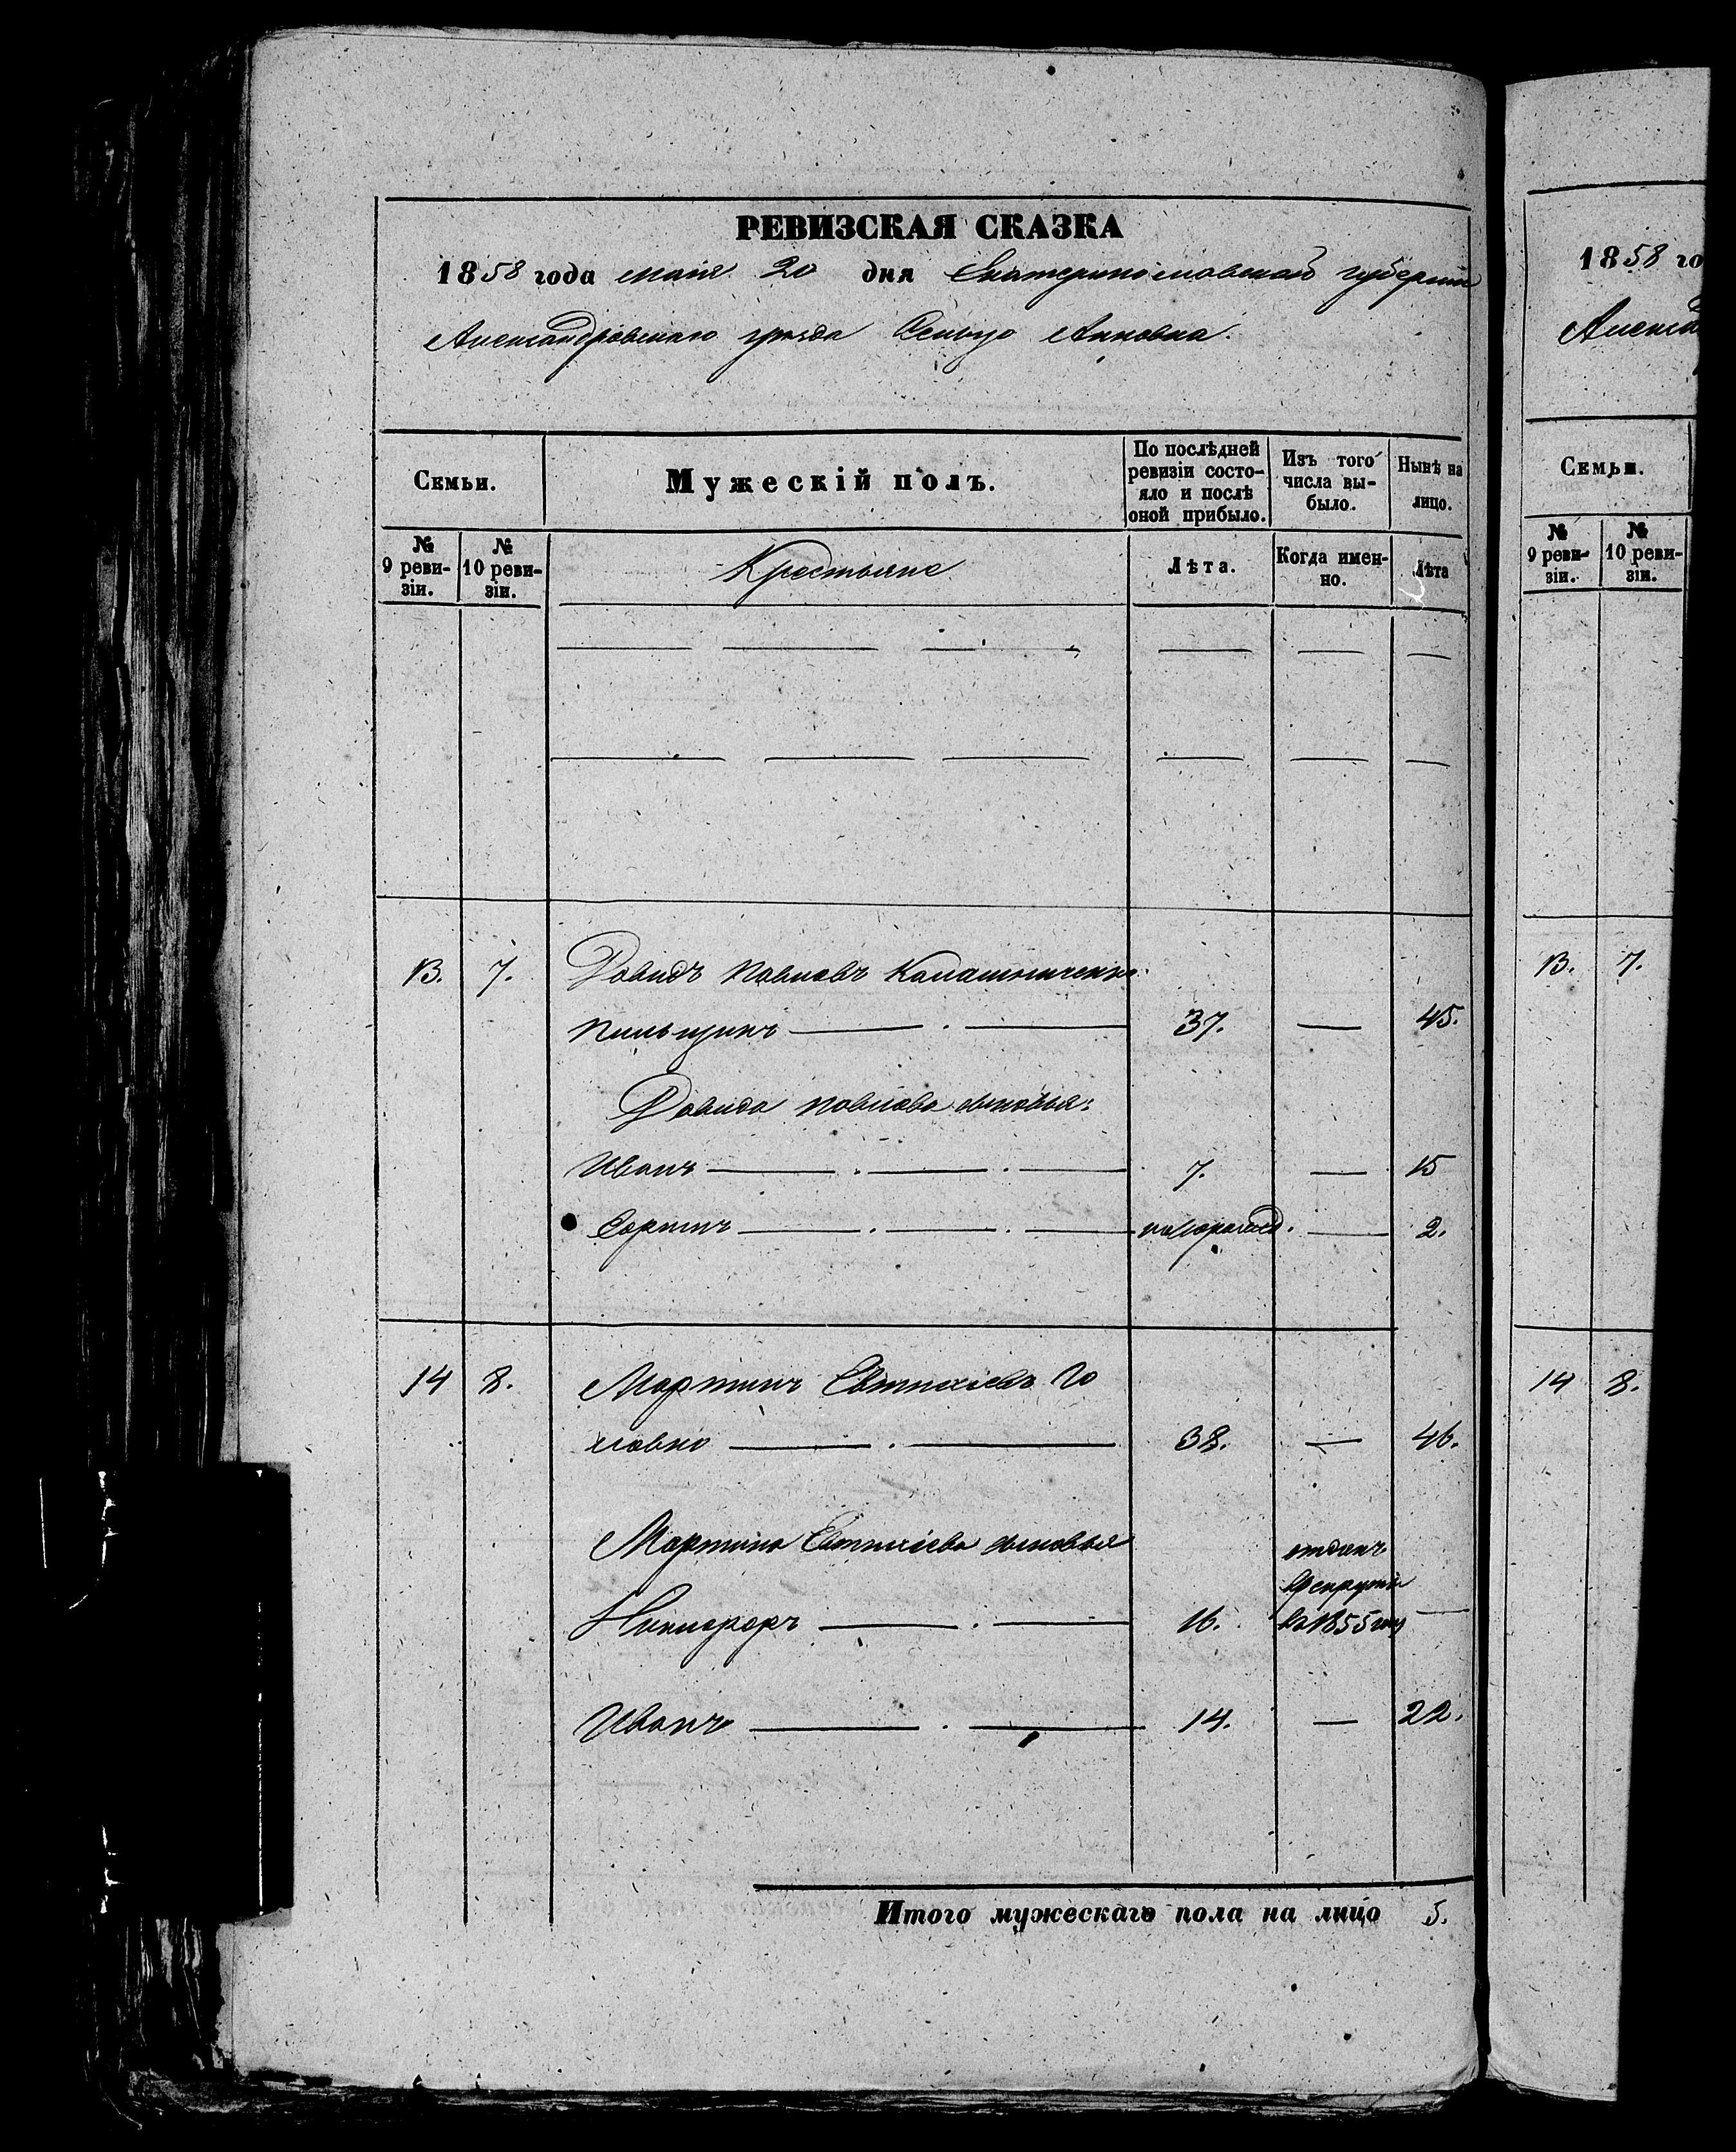 РЕВИЗСКАЯ СКАЗКА
1858 года мая 20 дня Екатеринославской губернии
Александровского уезда Сельцо Анновка.
Семьи.
Мужескій полъ.
По послѣдней ревизіи состо-
яло и послѣ
оной прибыло.
Изъ того числа вы-
было.
Нынѣ на лицо.
№ 9 реви-
зіи.
№ 10 реви-
зіи.
Крестьяне
Лѣта.
Когда имен-
но.
Лѣта
13. 7. Давидъ Павловъ Калашниченко
Пильщикъ 37. — 45.
Давида Павлова сыновья:
Иванъ 7. — 15
новорожд. — 2.
14 8. Мартинъ Евтихіевъ Го
ловко 38. — 46.
Мартина Евтихіева сыновья
отданъ
Никифоръ 16. въ 1855 году —
Иванъ 14. — 22.
Итого мужескаго пола на лицо 5.
1858 го
Александ
Семьи.
№ 9 реви-
зіи.
№ 10 реви-
зіи.
13. 7.
14 8.